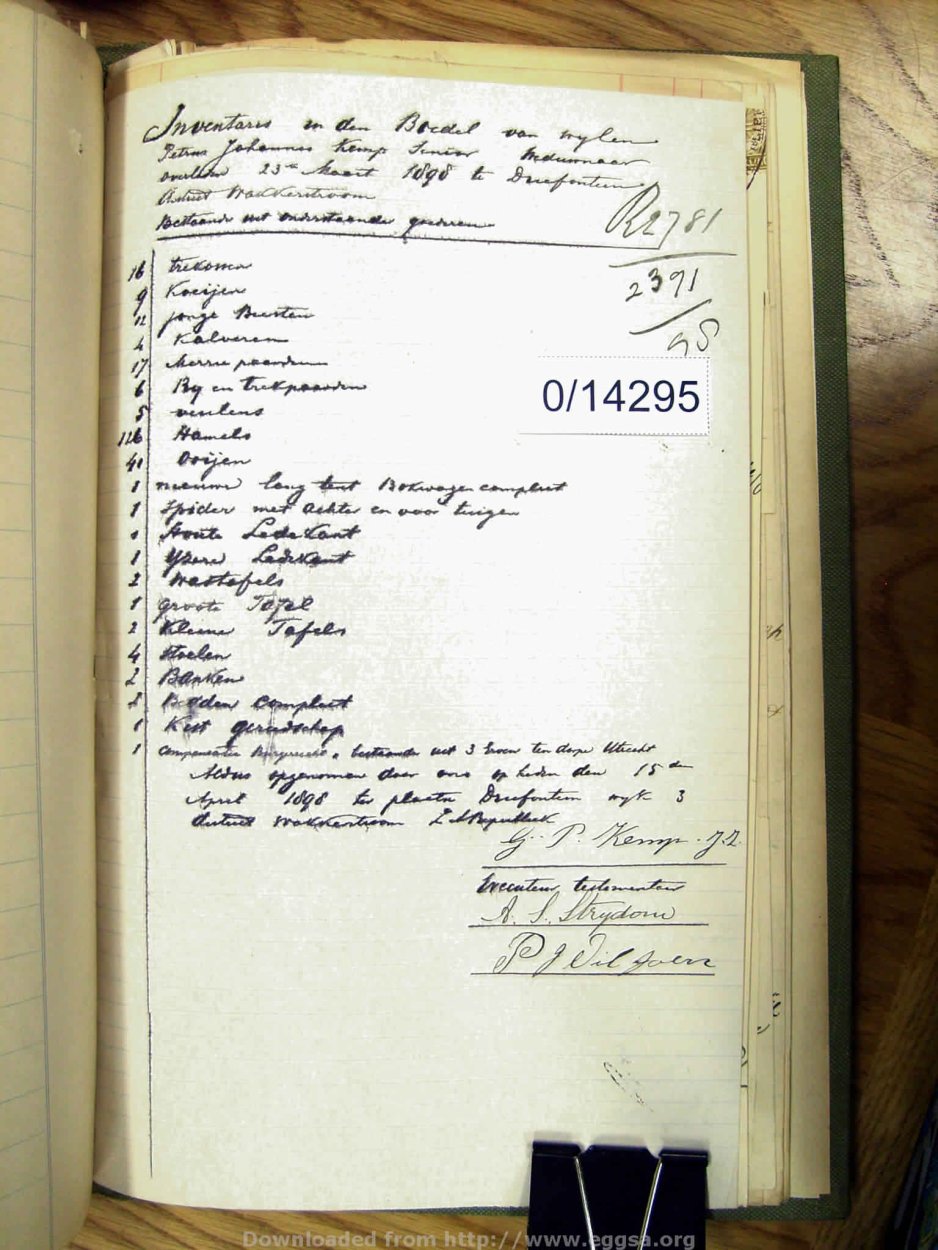 Inventaris in den Boedel van wylen
Petrus Johannes Kemp Senior Weduwnaar
overleden 23ste Maart 1898 te Driefontein
District Wakkerstroom
Bestaande uit onderstaande goederen
R2781
2391
95
0/14295
16 trekossen
9 Koeijen
12 jonge Beesten
4 Kalveren
17 Merrie paarden
6 Ry en trekpaarden
5 veulens
116 Hamels
41 Ooijen
1 nieuwe lang tent Bokwagen compleet
1 Spider met achter en voor tuigen
1 Houte Ledekant
1 Ysere Ledekant
2 Wastafels
1 groote Tafel
2 Kleine Tafels
4 Stoelen
2 Banken
2 Bedden compleet
1 Kist gereedschap
1 bestaande uit 3 Erven ten dorpe Utrecht
Aldus opgenomen door ons op heden den 15 den
April 1898 ter plaatse Driefontein wyk 3
District Wakkerstroom Z A Republiek
G. P. Kemp
Executeur testamentair
A. S. Strydom
P J Viljoen
Downloaded from http://www.eggsa.org